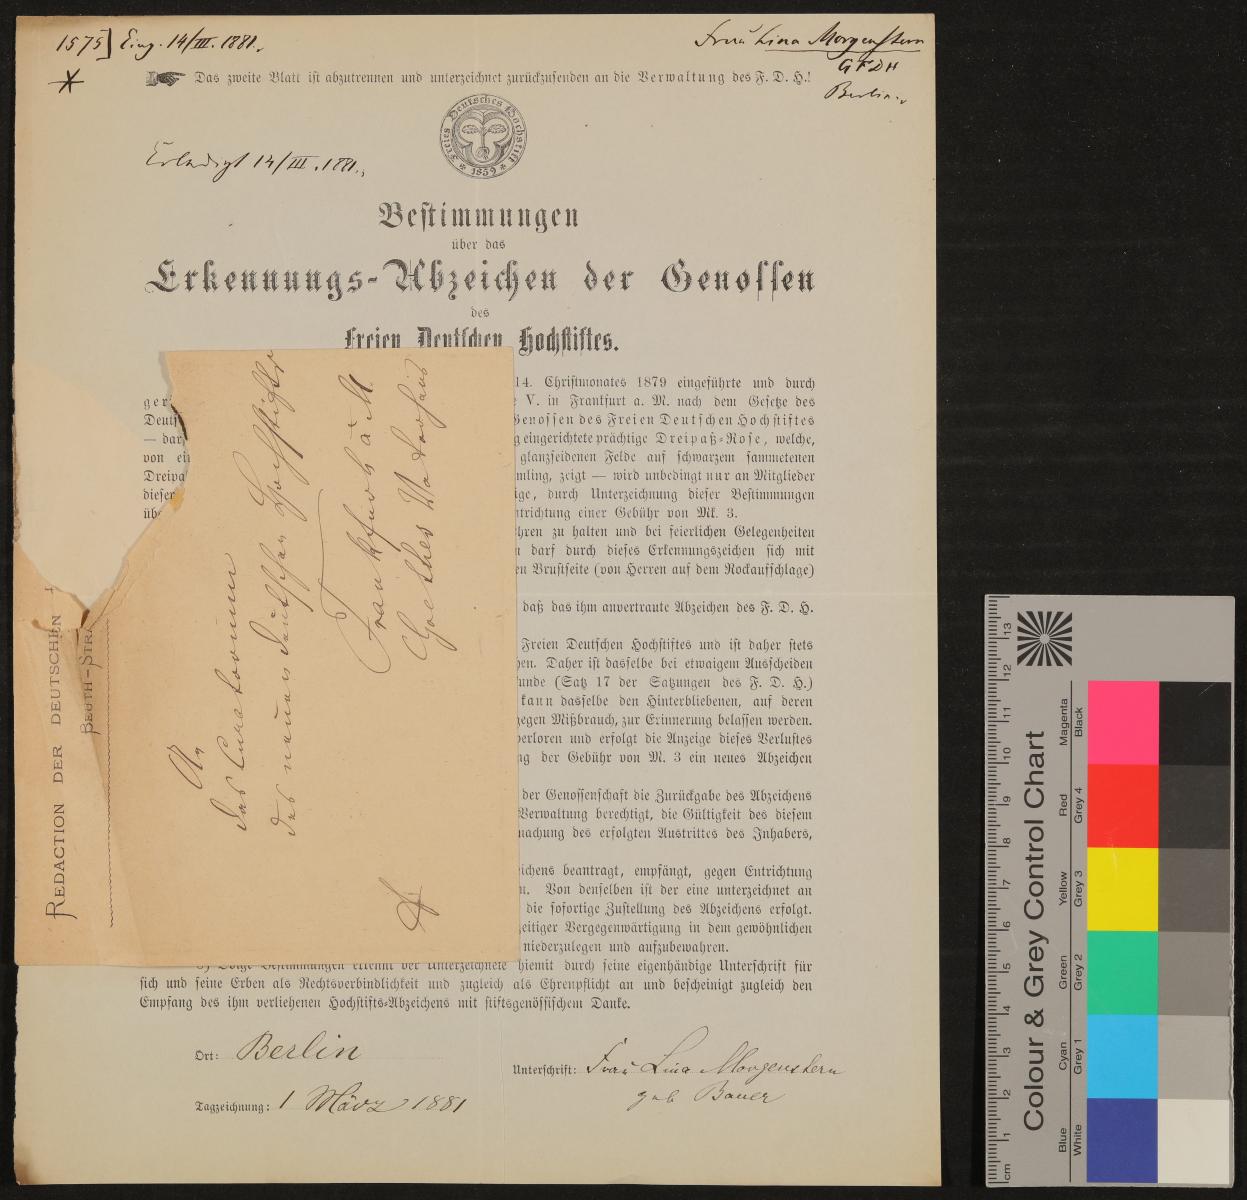 1575] Eing. 14/III. 1881.
Frau Lina Morgenstern
GFDH
Berlin.
Das zweite Blatt ist abzutrennen und unterzeichnet zurückzusenden an die Verwaltung des F. D. H.!
Freies Deutsches Hochstift
* 1859 *
Erledigt 14/III. 1881.
Bestimmungen
über das
Erkennungs-Abzeichen der Genossen
des
Freien Deutschen Hochstiftes.
14. Christmonates 1879 eingeführte und durch
ger V. in Frankfurt a. M. nach dem Gesetze des
Deuts Genossen des Freien Deutschen Hochstiftes
— dar eingerichtete prächtige Dreipaß-Rose, welche,
von ei glanzseidenen Felde auf schwarzem sammetenen
Dreipa mling, zeigt — wird unbedingt nur an Mitglieder
dieser ige, durch Unterzeichnung dieser Bestimmungen
üb ntrichtung einer Gebühr von Mk. 3.
hren zu halten und bei feierlichen Gelegenheiten
n darf durch dieses Erkennungszeichen sich mit
en Brustseite (von Herren auf dem Rockaufschlage)
daß das ihm anvertraute Abzeichen des F. D. H.
Freien Deutschen Hochstiftes und ist daher stets
hen. Daher ist dasselbe bei etwaigem Ausscheiden
unde (Satz 17 der Satzungen des F. D. H.)
kann dasselbe den Hinterbliebenen, auf deren
gegen Mißbrauch, zur Erinnerung belassen werden.
verloren und erfolgt die Anzeige dieses Verlustes
ng der Gebühr von M. 3 ein neues Abzeichen
der Genossenschaft die Zurückgabe des Abzeichens
Verwaltung berechtigt, die Gültigkeit des diesem
machung des erfolgten Austrittes des Inhabers,
eichens beantragt, empfängt, gegen Entrichtung
n. Von denselben ist der eine unterzeichnet an
die sofortige Zustellung des Abzeichens erfolgt.
zeitiger Vergegenwärtigung in dem gewöhnlichen
niederzulegen und aufzubewahren.
Bestimmungen erkennt der Unterzeichnete hiemit durch seine eigenhändige Unterschrift für
sich und seine Erben als Rechtsverbindlichkeit und zugleich als Ehrenpflicht an und bescheinigt zugleich den
Empfang des ihm verliehenen Hochstifts-Abzeichens mit stiftsgenössischem Danke.
Ort: Berlin
Unterschrift: Frau Lina Morgenstern
geb Bauer
Tagzeichnung: 1 März 1881
REDACTION DER DEUTSCHEN
BEUTH-STRA
An
das Curatorium
des neuen deutschen Hochstifts
Frankfurt a M.
Goethes Vaterhaus
Colour & Grey Control Chart
Blue Cyan Green Yellow Red Magenta
White Grey 1 Grey 2 Grey 3 Grey 4 Black
cm 1 2 3 4 5 6 7 8 9 10 11 12 13